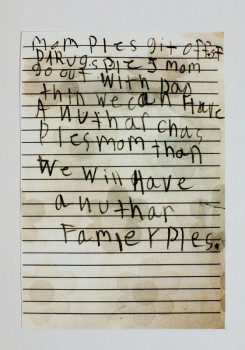 Mom Ples git off of
DARugs Ples mom
go out with Dad
thin we can Have
A nuthar chas
Ples mom than
We will Have
a nuthar
Famler Ples.